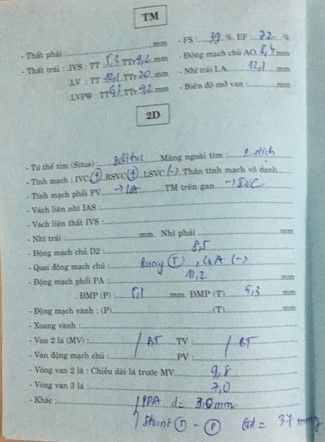 TM
- Thất phải : mm - FS : 39 % EF : 72 %
- Thất trái : IVS : TT 5,3 TTr 9,2 mm - Động mạch chủ AO 8,4 mm
.LV : TT 12,1 TTr 20 mm - Nhĩ trái LA 12,1 mm
.LVPW : TT TTr 9,2 mm - Biên độ mở van mm
2D
- Tư thế tim (Situs) : solitus Màng ngoài tim : 0 dịch
- Tĩnh mạch : IVC (+) RSVC (+) LSVC (-) Thân tĩnh mạch vô danh
- Tĩnh mạch phổi PV → LA TM trên gan → SVC
- Vách liên nhĩ IAS :
- Vách liên thất IVS :
- Nhĩ trái : mm. Nhĩ phải : mm
- Động mạch chủ D2 : 8,5 mm
- Quai động mạch chủ : Quay (T), (-)
- Động mạch phổi PA : 11,2 mm
. ĐMP (P) : 5,1 mm. ĐMP (T) 5,3 mm
- Động mạch vành : (P) (T) mm
- Xoang vành :
- Van 2 lá (MV) : BT TV : BT
- Van động mạch chủ : PV :
- Vòng van 2 lá : Chiều dài lá trước MV 9,8
- Vòng van 3 lá : 7,0
- Khác : PDA d = 3.0 mm
Shunt (T) - (P) Gd = 37 mmg